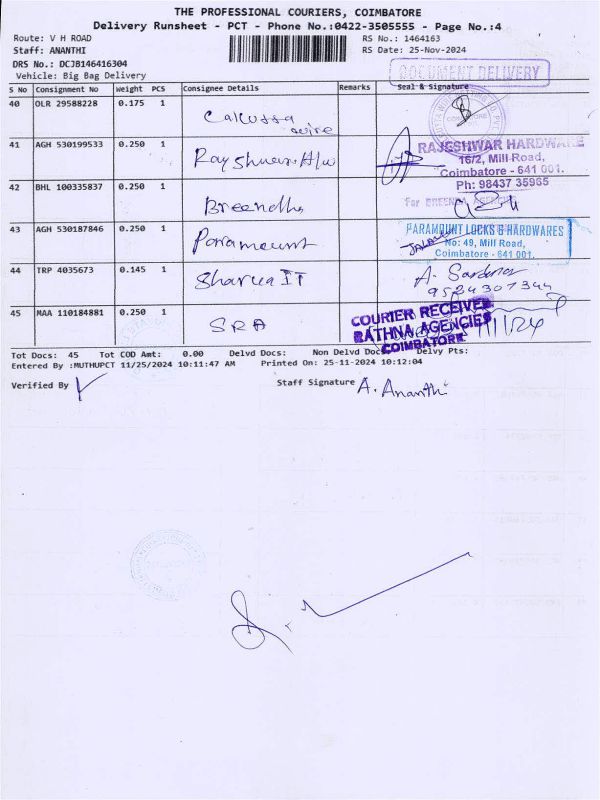 THE PROFESSIONAL COURIERS, COIMBATORE
Delivery Runsheet - PCT - Phone No.:0422-3505555 - Page No.:4
Route: V H ROAD
RS No.: 1464163
Staff: ANANTHI
RS Date: 25-Nov-2024
DRS No.: DCJB146416304
Vehicle: Big Bag Delivery
DOCUMENT DELIVERY
S No Consignment No Weight PCS Consignee Details Remarks Seal & Signature
40 OLR 29588228 0.175 1
wire
41 AGH 530199533 0.250 1
RAJESHWAR HARDWARE
16/2, Mill Road,
Coimbatore - 641 001.
Ph: 98437 35965
42 BHL 100335837 0.250 1
For BREENDA AGENCIES
43 AGH 530187846 0.250 1 Paramount
PARAMOUNT LOCKS & HARDWARES
No: 49, Mill Road,
Coimbatore - 641 001.
44 TRP 4035673 0.145 1
A.
45 MAA 110184881 0.250 1 SRA
COURIER RECEIVED
RATHNA AGENCIES
COIMBATORE
Tot Docs: 45 Tot COD Amt: 0.00 Delvd Docs: Non Delvd Docs: Delvy Pts:
Entered By :MUTHUPCT 11/25/2024 10:11:47 AM Printed On: 25-11-2024 10:12:04
Verified By
Staff Signature A. Ananthi